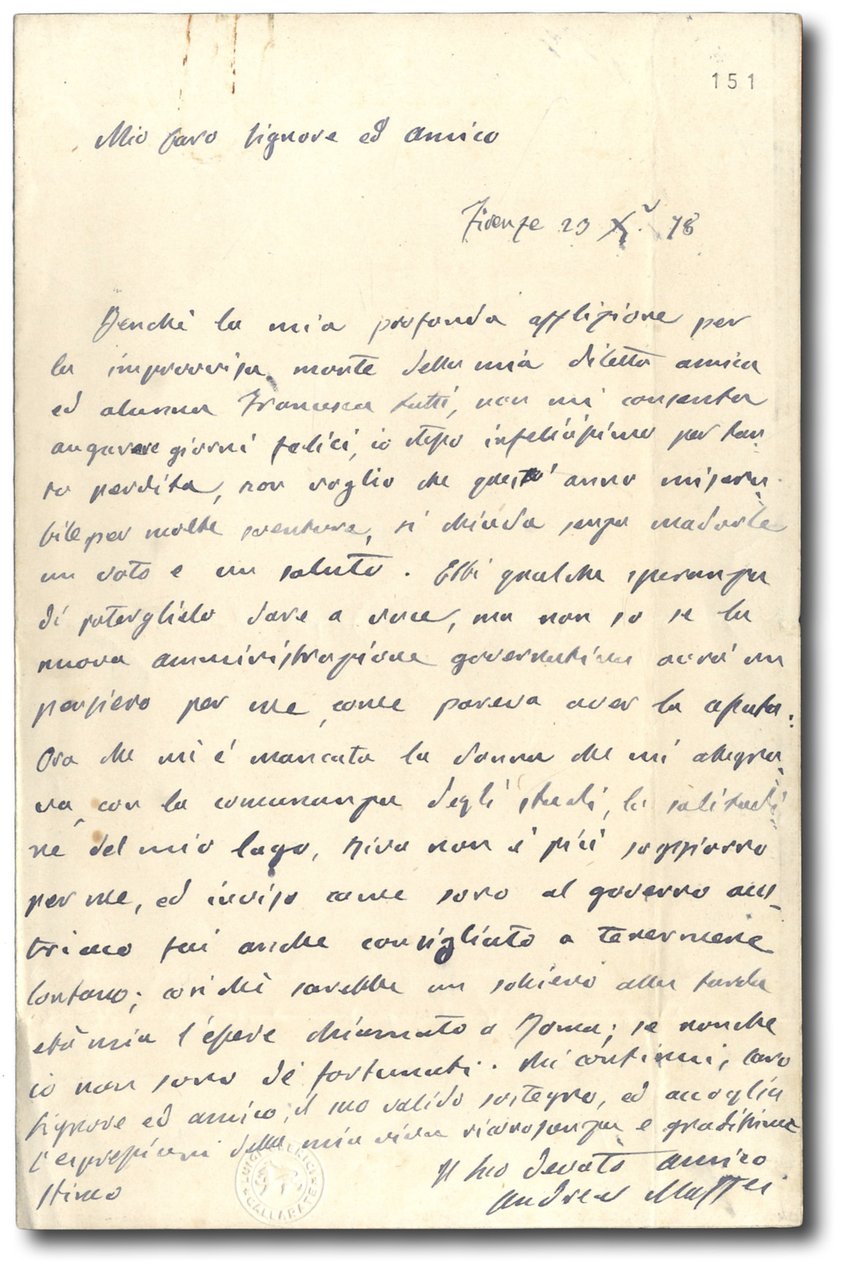 151
Mio caro Signore ed amico
Firenze 23 X 78
Benchè la mia profonda afflizione per
la improvvisa morte della mia diletta amica
ed alunna Francesca Lutti, non mi consenta
augurare giorni felici, io dopo infelicissimo per tan
ta perdita, non voglio che quest' anno misera
bile per molte sventure, si chiuda senza mandarle
un voto e un saluto. Ebbi qualche speranza
di poterglielo dare a voce, ma non so se la
nuova amministrazione governativa avrà un
pensiero per me, come pareva aver la caduta.
Ora che mi è mancata la donna che mi allegra
va, con la comunanza degli studi, la solitudi
ne del mio lago, Riva non è più soggiorno
per me, ed inviso come sono al governo aus
triaco fui anche consigliato a tenermene
lontano; così chè sarebbe un sollievo alla tarda
età mia l'essere chiamato a Roma; se nonche
io non sono dè fortunati. Mi continui, caro
Signore ed amico, il suo valido sostegno, ed accoglia
l'espressioni della mia viva riconoscenza e graditissima
stima
Il suo devoto amico
Andrea Maffei
GALLARATE